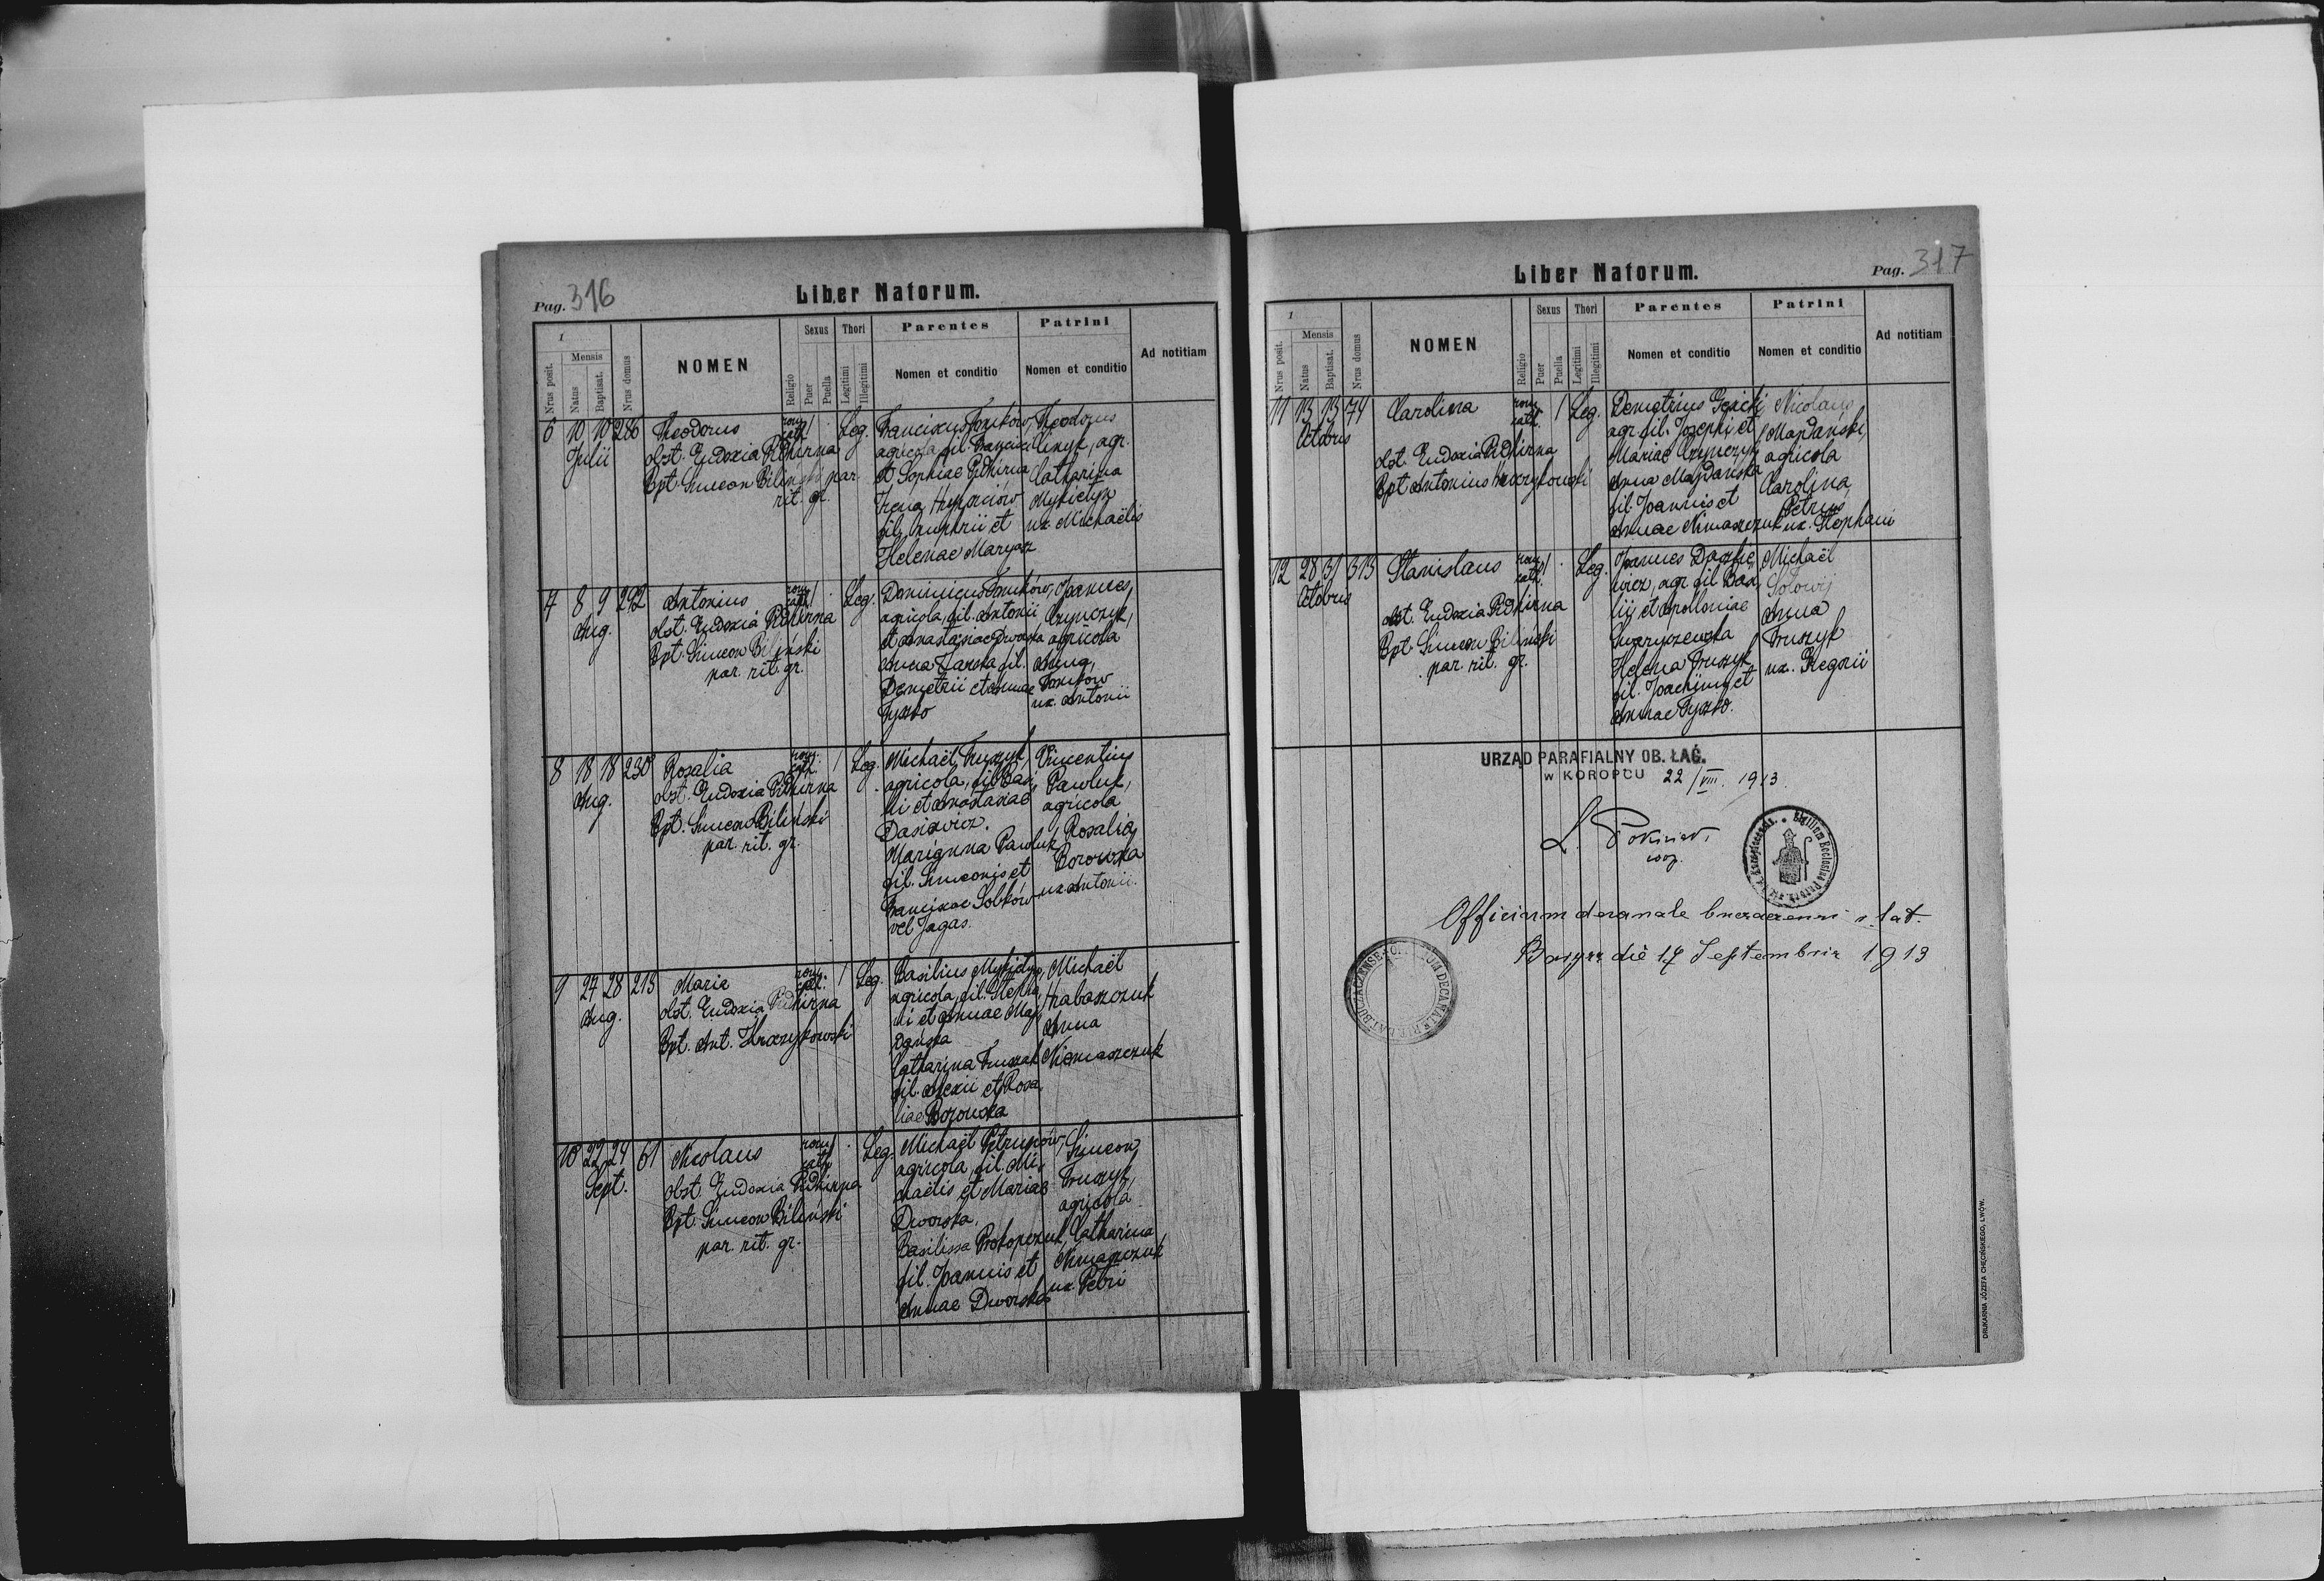 Pag. 316
Liber Natorum.
1
Nrus posit.
Mensis
Natus
Baptisat.
Nrus domus
NOMEN
Religio
Sexus
Puer
Puella
Thori
Legitimi
Illegitimi
Parentes
Nomen et conditio
Patrini
Nomen et conditio
Ad notitiam
6 10 10 286 Theodorus rom. cath. / · Leg.
Julii
obst. Eudoxia Pidhirna
Bpt. Simeon Biliński par.
rit. gr.
Franciscus Tomków,
agricola, fil. Francisci
et Sophiae Pidhirna
Irena
fil. et
Helenae
Theodorus
agr.
Catharina
Mykietyn
ux. Michaëlis
7 8 9 292 Antonius rom. cath. / · Leg.
Aug.
obst. Eudoxia Pidhirna
Bpt. Simeon Biliński
par. rit. gr.
Dominicus Tomków,
agricola, fil. Antonii
et Anastasiae Dworska
Anna fil.
Demetrii et Annae
Joannes
agricola
Anna
Tomków
ux. Antonii
8 18 18 230 Rosalia rom. cath. · / Leg.
Aug.
obst. Eudoxia Pidhirna
Bpt. Simeon Biliński
par. rit. gr.
Michaël
agricola, fil. Basi-
lii et Anastasiae
Dasiewicz.
Marianna Pawluk
fil. Simeonis et
Franciscae Sobków
vel Jagas.
Vincentius
Pawluk,
agricola
Rosalia
Borowska
ux. Antonii.
9 27 28 215 Maria rom. cath. · / Leg.
Aug.
obst. Eudoxia Pidhirna
Bpt. Ant.
Basilius Mykietyn,
agricola, fil. Stepha-
ni et Annae Maj-
dańska
Catharina
fil. Alexii et Rosa-
liae Borowska
Michaël
Hrabaszczuk
Anna
Niemaszczuk
10 22 24 61 Nicolaus rom. cath. / · Leg.
Sept.
obst. Eudoxia Pidhirna
Bpt. Simeon Biliński
par. rit. gr.
Michaël Petrusiów,
agricola, fil. Mi-
chaëlis et Mariae
Dworska.
Basilissa Prokopczuk
fil. Joannis et
Annae Dworska
Simeon
agricola
Catharina
Nimaszczuk
ux. Petri
Liber Natorum.
Pag. 317
1
Nrus posit.
Mensis
Natus
Baptisat.
Nrus domus
NOMEN
Religio
Sexus
Puer
Puella
Thori
Legitimi
Illegitimi
Parentes
Nomen et conditio
Patrini
Nomen et conditio
Ad notitiam
11 13 13 74 Carolina rom. cath. · / Leg.
Octobris
obst. Eudoxia Pidhirna
Bpt. Antonius
Demetrius
agr. fil. Josephi et
Mariae
Anna Majdańska
fil. Joannis et
Annae Nimaszczuk
Nicolaus
Majdański,
agricola
Carolina
ux. Stephani
12 28 31 313 Stanislaus rom. cath. / · Leg.
Octobris
obst. Eudoxia Pidhirna
Bpt. Simeon Biliński
par. rit. gr.
Joannes
wicz, agr. fil. Basi-
lii et Apolloniae
Helena
fil. Joachimi et
Annae
Michaël
Sołowij
Anna
ux. Gregorii
URZĄD PARAFIALNY OB. ŁAĆ.
W KOROPCU 22/VIII. 1913.
Officium decanale buczaczensi r. lat.
die 14 Septembris 1913
DRUKARNIA JÓZEFA CHĘCIŃSKIEGO, LWÓW.